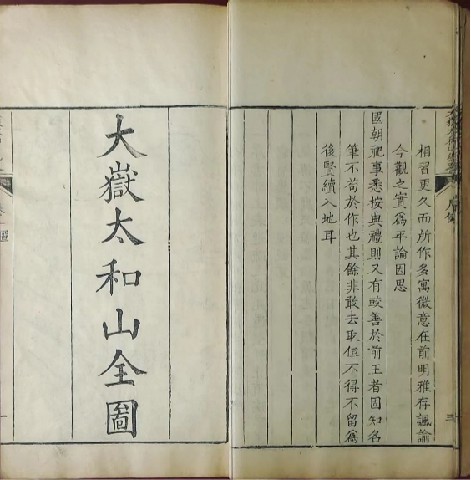 相習更久而所作多寓微意在前明雅存諷諭
今觀之實為平論因思
國朝祀事悉按典禮則又有攺善於前王者固知名
筆不苟於作也其餘非敢去取但不得不留為
後賢續入地耳
三
大嶽太和山全圖